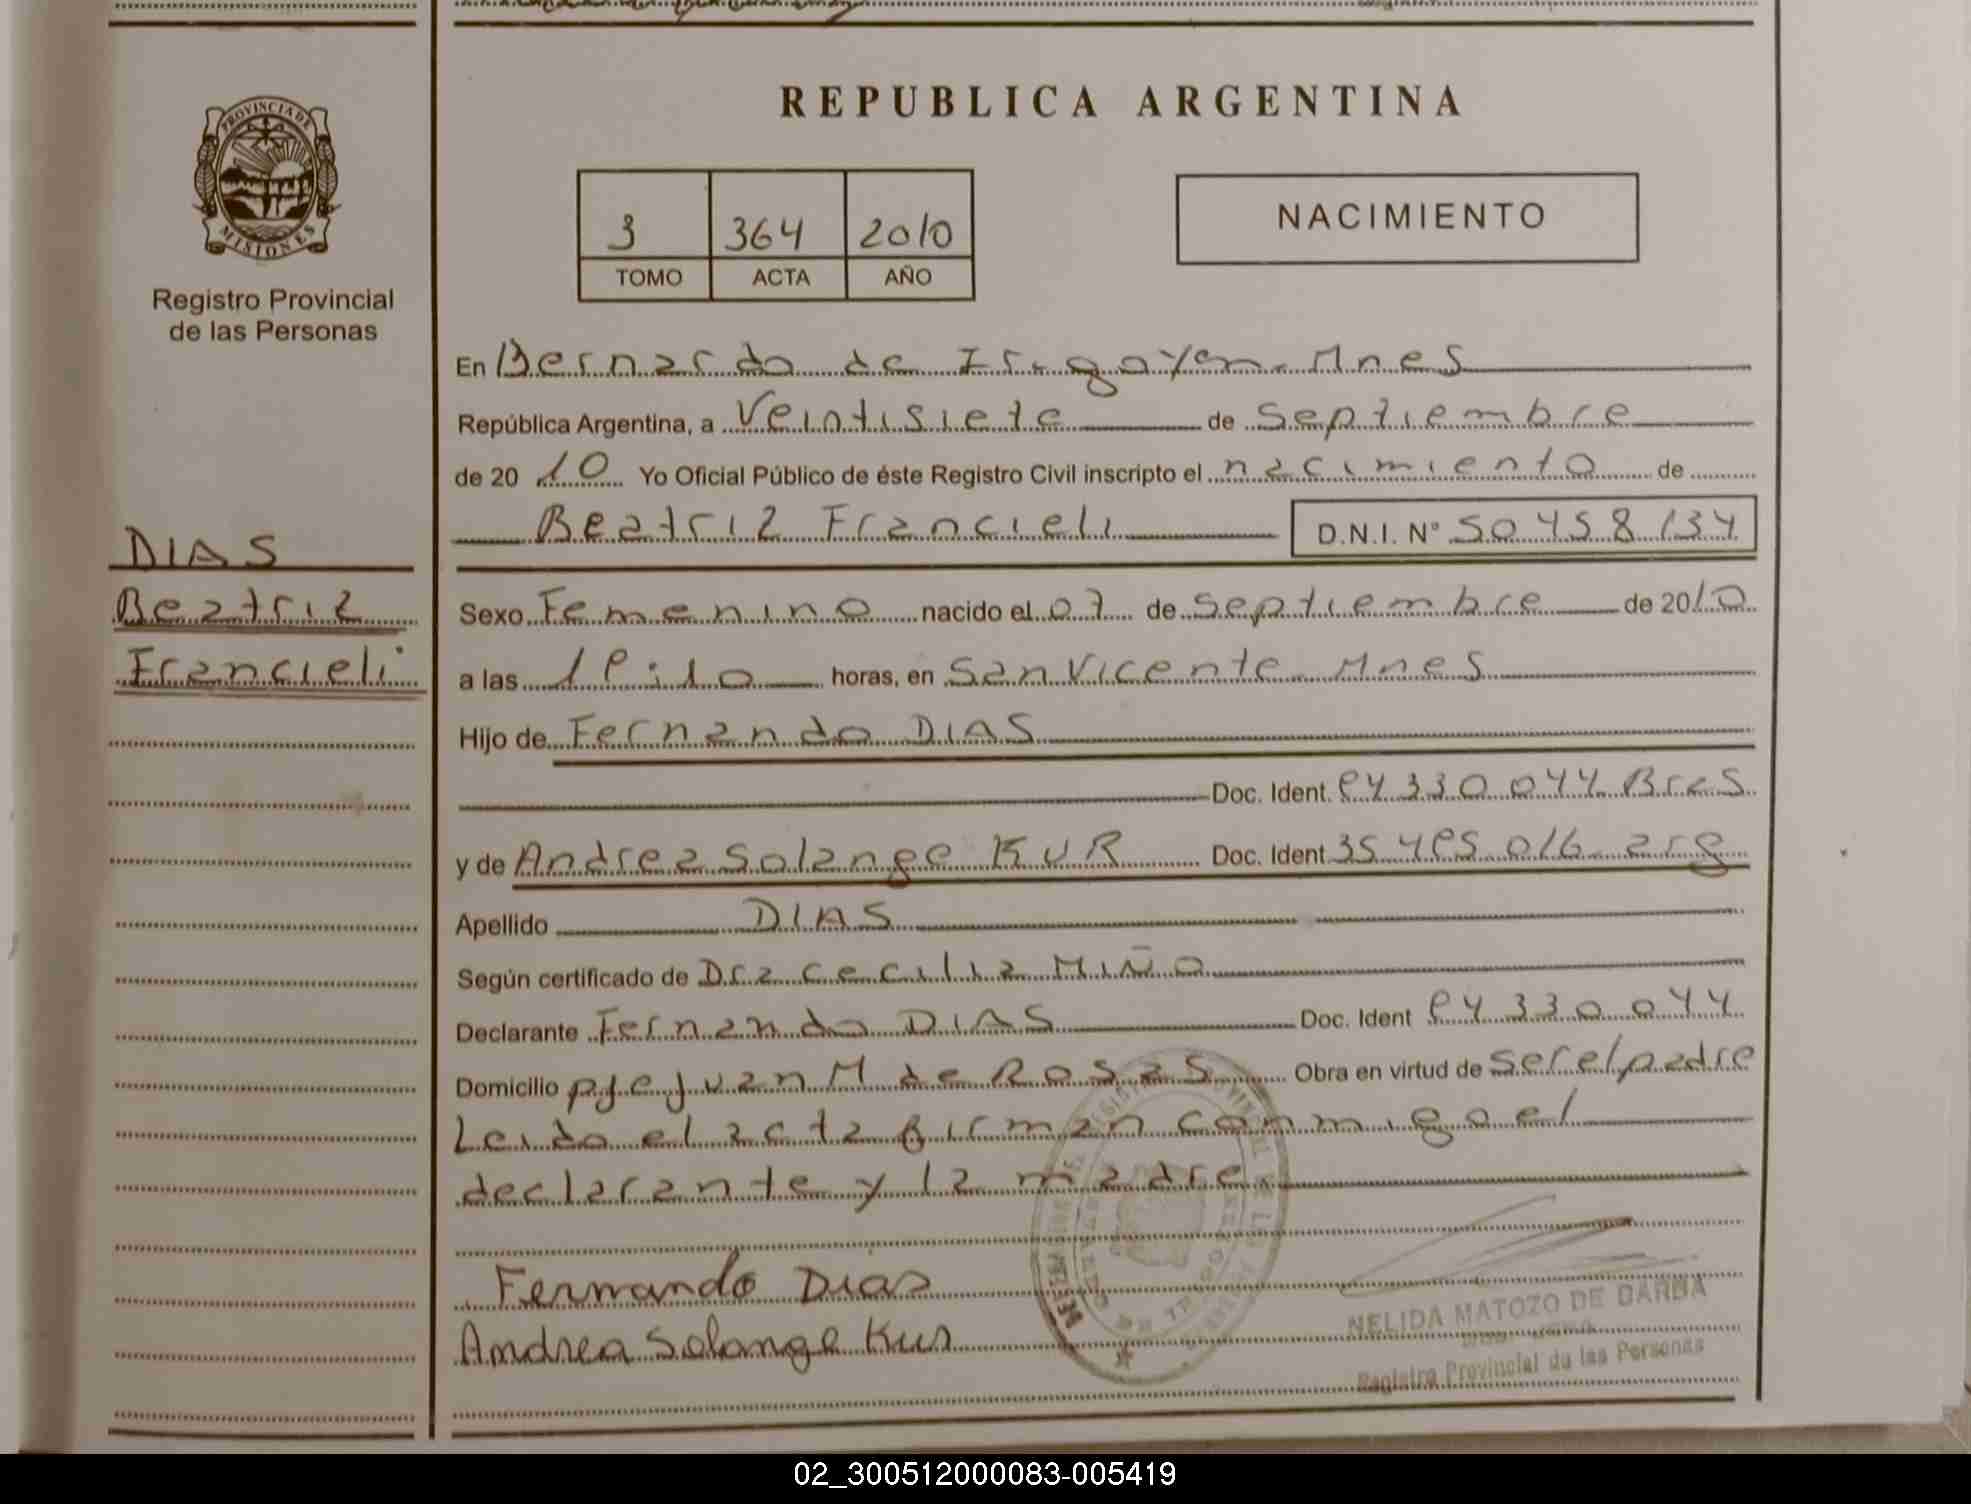 REPUBLICA ARGENTINA
PROVINCIA DE
MISIONES
Registro Provincial
de las Personas
3 364 2010
TOMO ACTA AÑO
NACIMIENTO
En Bernardo de Irigoyen Mnes
República Argentina, a Veintisiete de Septiembre
de 20 10 Yo Oficial Público de éste Registro Civil inscripto el nacimiento de
Beatriz Francieli D.N.I. Nº 50 458 134
DIAS
Beatriz
Francieli
Sexo Femenino nacido el 07 de Septiembre de 20 10
a las horas, en San Vicente Mnes
Hijo de Fernando DIAS
Doc. Ident. Bras
y de Andrea Solange KUR Doc. Ident. arg
Apellido DIAS
Según certificado de Dra Cecilia MIÑO
Declarante Fernando DIAS Doc. Ident
Domicilio pje Juan M de Rosas Obra en virtud de ser el padre
Leido el acta firman conmigo el
declarante y la madre
Fernando Dias
Andrea Solange Kur
NELIDA MATOZO DE BARBA
Registro Provincial de las Personas
02_300512000083-005419